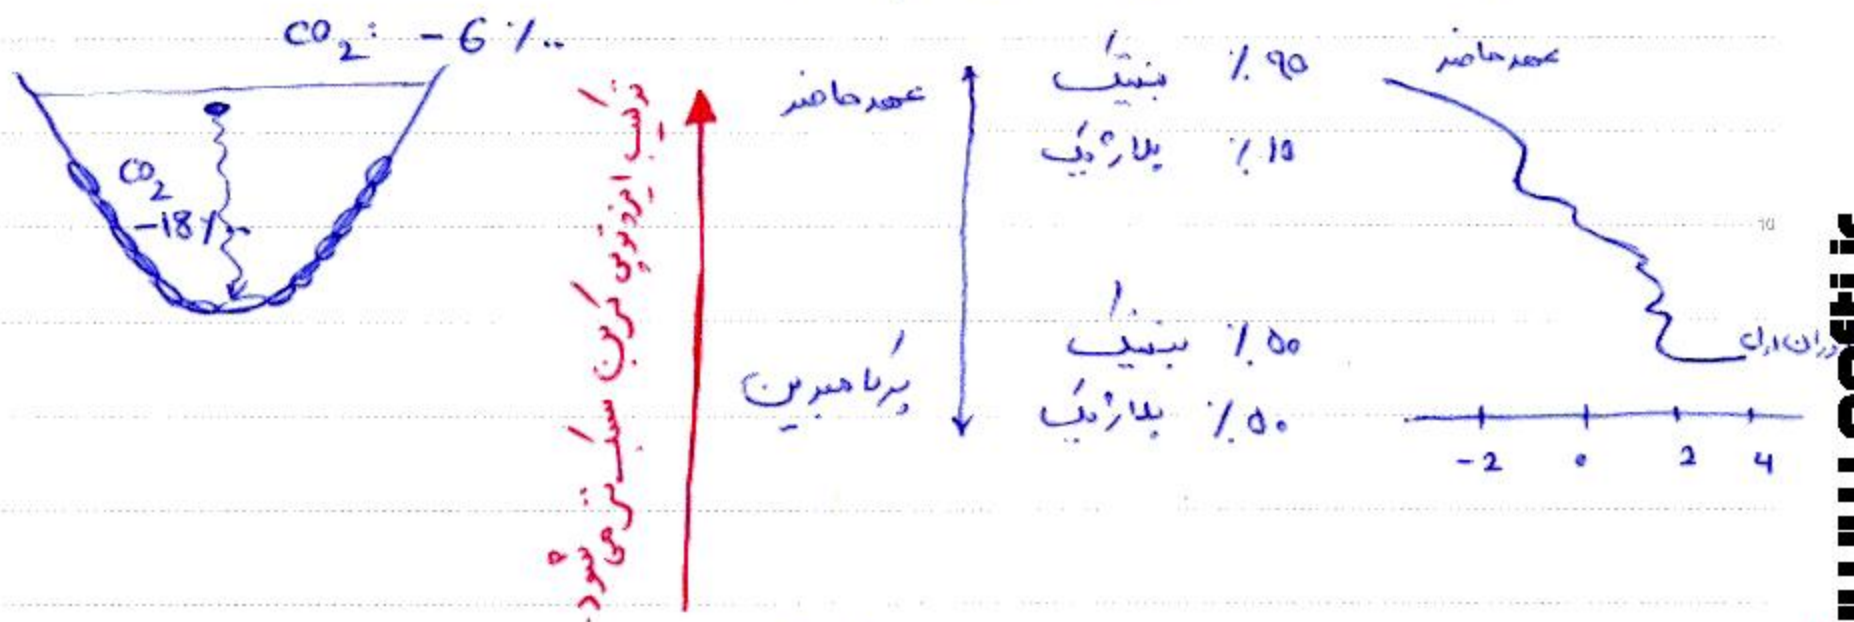 CO₂: - 6 ‰
CO₂
-18‰
ترکیب ایزوتوپی کربن سبک تر می شود
عهد حاضر
پرکامبرین
٪ ۹۵ بنتیک
٪ ۱۵ پلاژیک
٪ ۵۰ بنتیک
٪ ۵۰ پلاژیک
عهد حاضر
دوران اول
-2 0 2 4
10